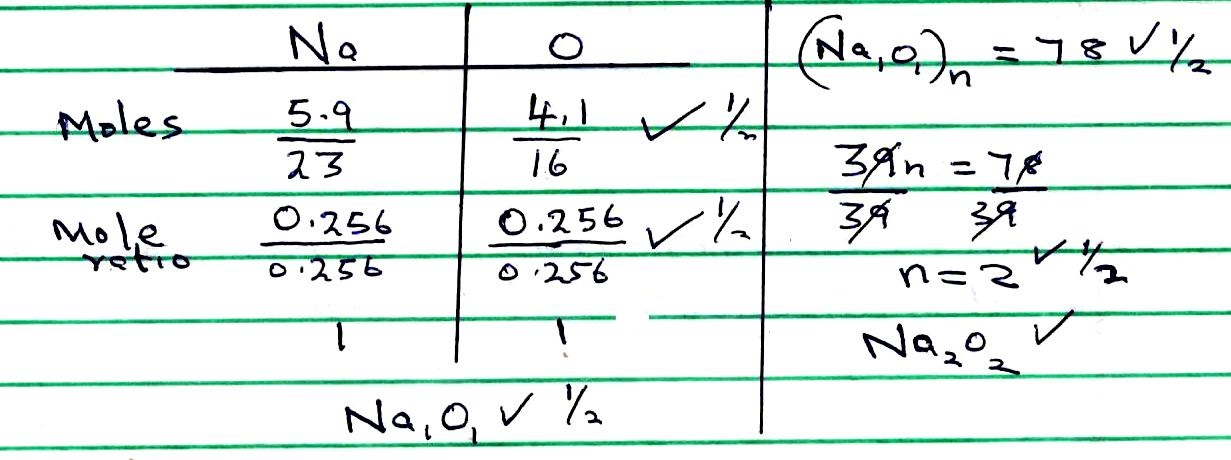 Na O
Moles 5.9/23 4.1/16 ✓ ½
Mole ratio 0.256/0.256 0.256/0.256 ✓ ½
1 1
Na₁O₁ ✓ ½
(Na₁O₁)n = 78 ✓ ½
39n/39 = 78/39
n = 2 ✓ ½
Na₂O₂ ✓